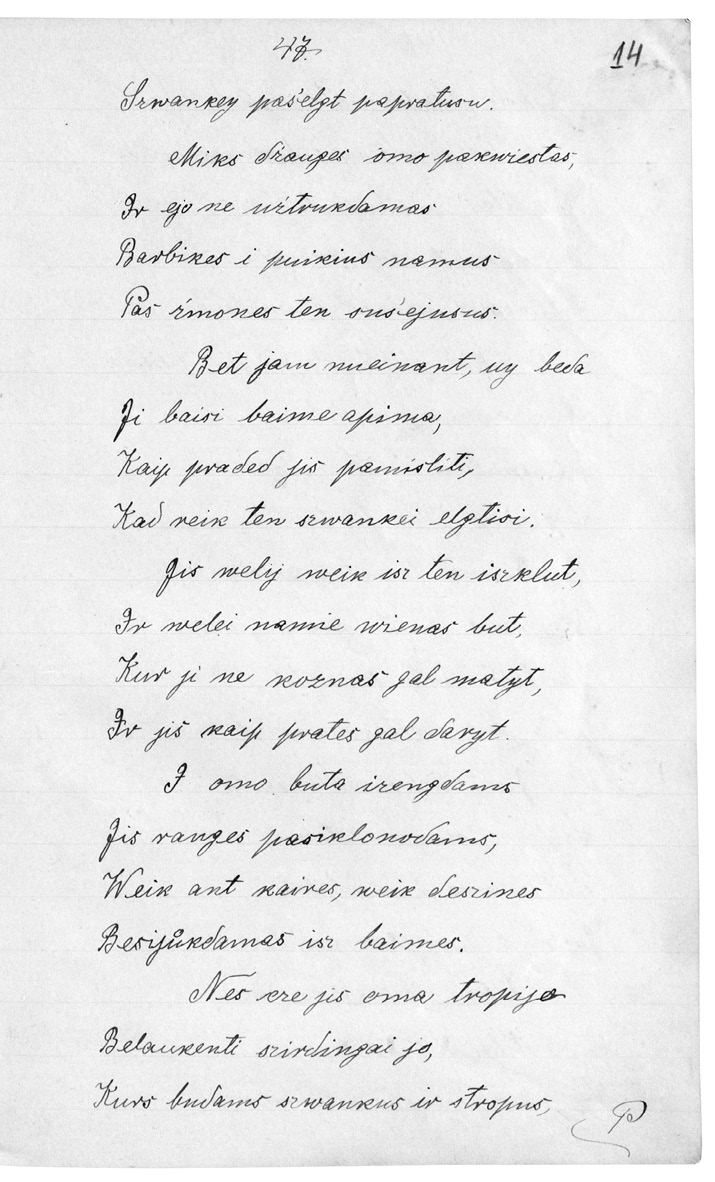 47.
14
Szwankey paśelgt papratusu.
Miks dźauges omo pakwiestas,
Ir ejo ne uźtrukdamas
Barbikes i puikius namus
Pas źmones ten suśejusus.
Bet jam nueinant, uy beda
Ji baisi baime apima,
Kaip praded jis pamisliti,
Kad reik ten szwankei elgtisi.
Jis welij weik isz ten iszklut,
Ir welei namie wienas but,
Kur ji ne koznas gal matyt,
Ir jis kaip prates gal daryt.
I omo buta izengdams
Jis ranges pasiklonodams,
Weik ant kaires, weik deszines
Besijůkdamas isz baimes.
Nes cze jis oma tropijo
Belaukenti szirdingai jo,
Kurs budams szwankus ir stropus,